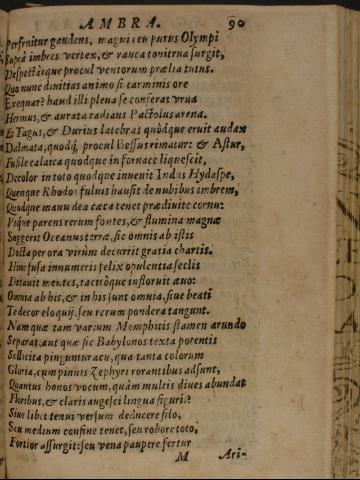 AMBRA. 90
Perfruitur gaudens, magni ceu purus Olympi
Suprà imbres vertex, & rauca tonitrua surgit,
Despectátque procul ventorum prælia tutus.
Quo nunc diuitias animo si carminis ore
Exequar? haud illi plena se conferat vrna
Hermus, & aurata radians Pactolus arena.
Et Tagus, & Durius latebras quòdque eruit audax
Dalmata, quodq́; procul Bessus rimatur: & Astur,
Fusile calaica quodque in fornace liquescit,
Decolor in toto quodque inuenit Indus Hydaspe,
Quenque Rhodos fuluis hausit de nubibus imbrem,
Quodque manu dea cæca tenet prædiuite cornu:
Vtque parens rerum fontes, & flumina magnæ
Suggerit Oceanus terræ, sic omnis ab istis
Docta per ora virûm decurrit gratia chartis.
Hinc fusa innumeris felix opulentia seclis
Ditauit mentes, tacitóque infloruit æuo:
Omnia ab his, & in his sunt omnia, siue beati
Te decor eloquij, seu rerum pondera tangunt.
Nam quæ tam varium Memphitis stamen arundo
Separat, aut quæ sic Babylonos texta potentis
Sollicita pinguntur acu, qua tanta colorum
Gloria, cum pinnis Zephyri rorantibus adsunt,
Quantus honos vocum, quàm multis diues abundat
Floribus, & claris augescit lingua figuris?
Siue libet tenui versum deducere filo,
Seu medium confine tenet, seu robore toto,
Fortior assurgit: seu vena paupere fertur
M Ari-